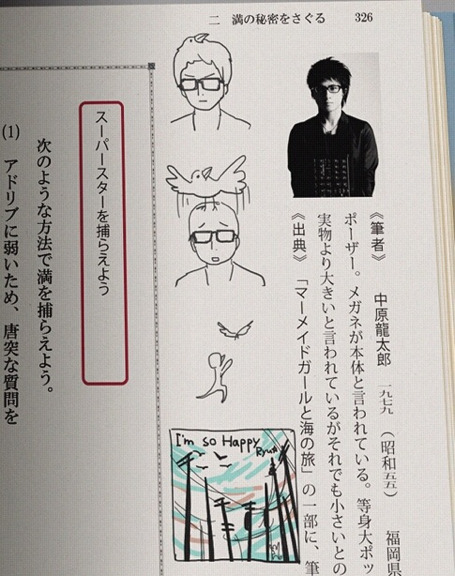 二 満の秘密をさぐる 326
《筆者》 中原龍太郎 一九七九 (昭和五五) 福岡県
ポーザー。メガネが本体と言われている。等身大ポッ
実物より大きいと言われているがそれでも小さいとの
《出典》 「マーメイドガールと海の旅」の一部に、筆
I'm so Happy
Ryu☆
スーパースターを捕らえよう
次のような方法で満を捕らえよう。
(1) アドリブに弱いため、唐突な質問を